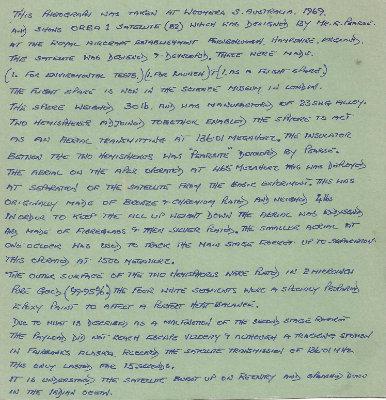 THIS PHOTOGRAPH WAS TAKEN AT WOOMERA S. AUSTRALIA. 1969.
AND SHOWS ORBA 1 SATELLITE (B2) WHICH WAS DESIGNED BY MR. PEARSE.
AT THE ROYAL AIRCRAFT ESTABLISHMENT FARNBOROUGH, HAMPSHIRE, ENGLAND.
THIS SATELLITE WAS DESIGNED & DEVELOPED. THREE WERE MADE.
(1. FOR ENVIRONMENTAL TESTS.) (1. FOR LAUNCH) & (1. AS A FLIGHT SPARE.)
THE FLIGHT SPARE IS NOW IN THE SCIENCE MUSEUM IN LONDON.
THIS SPHERE WEIGHED 30 lb. AND WAS MANUFACTURED OF ALLOY.
TWO HEMISPHERES ADJOINED TOGETHER ENABLED THE SPHERE TO ACT
AS AN AERIAL TRANSMITTING AT 136.01 MEGAHERTZ. THE INSULATOR
BETWEEN THE TWO HEMISPHERES WAS "PEARSITE" DEVELOPED BY PEARSE.
THE AERIAL ON THE APEX OPERATED AT 465 MEGAHERTZ WAS DEPLOYED
AT SEPARATION OF THE SATELLITE FROM THE BASIC EXPERIMENT. THIS WAS
ORIGINALLY MADE OF BRONZE & CHROMIUM PLATED AND WEIGHED 4 lbs
IN ORDER TO KEEP THE ALL UP WEIGHT DOWN THE AERIAL WAS
AND MADE OF FIBREGLASS & THEN SILVER PLATED. THE SMALLER AERIAL AT
ONE OCLOCK WAS USED TO TRACK THE MAIN STAGE ROCKET UP TO SEPARATION
THIS OPERATED AT 1500 MEGAHERTZ.
THE OUTER SURFACE OF THE TWO HEMISPHERES WERE PLATED IN 2 MICROINCH
PURE GOLD (99.95%). THE FOUR WHITE SEGMENTS WERE A SPECIALLY PREPARED
EPOXY PAINT TO AFFECT A PERFECT HEAT BALANCE.
DUE TO WHAT IS DESCRIBED AS A MALFUNCTION OF THE SECOND STAGE ROCKET
THE PAYLOAD DID NOT REACH ESCAPE VELOCITY & ALTHOUGH A TRACKING STATION
IN FAIRBANKS ALASKA RECORDED THE SATELLITE TRANSMISSION OF 136.01 MHZ.
THIS ONLY LASTED FOR 15 SECONDS.
IT IS UNDERSTOOD THE SATELLITE BURNT UP ON REENTRY AND SPLASHED DOWN
IN THE INDIAN OCEAN.